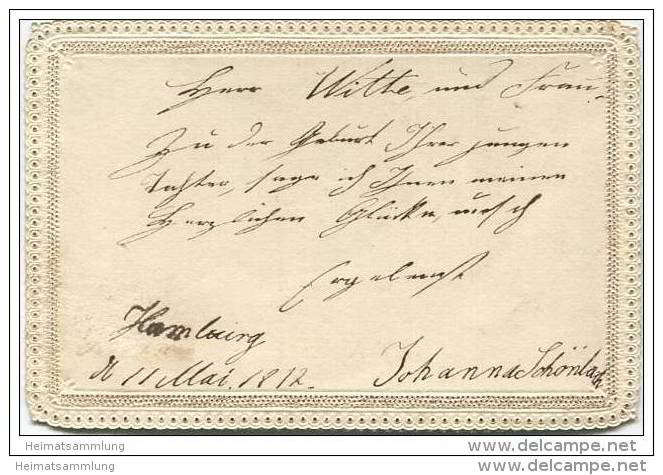 Herr Witte, und Frau.
Zu der Geburt Ihrer jungen
Tochter, sage ich Ihnen meinen
Herzlichen Glückwunsch
Ergebenst
Hamburg
d 11 Mai. 1812. Johanna Schönla
Heimatsammlung
Heimatsammlung
www.delcampe.net
www.delcampe.net